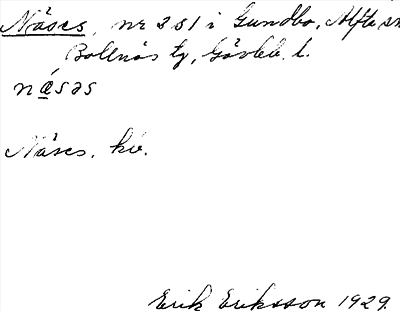 Näses, nr 351 i Gundbo, Alfta sn
Bollnäs tg, Gävleb. l.
näsəs
Näses, hv.
Erik Eriksson 1929.